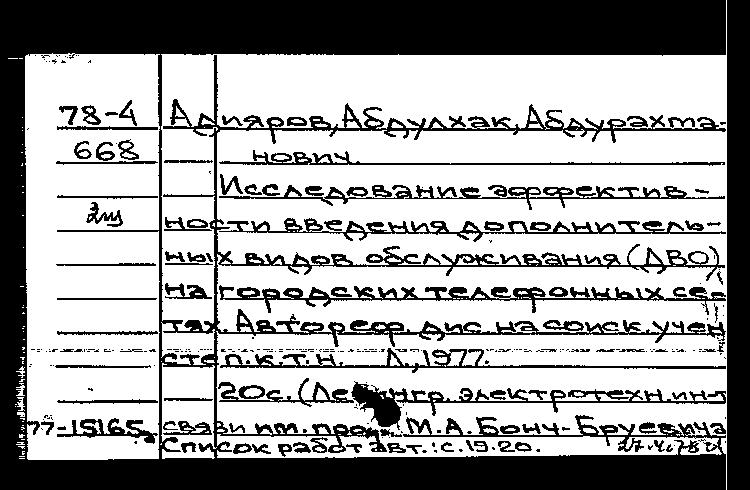 78-4 Адияров, Абдулхак, Абдурахма-
668 нович.
Исследование эффектив-
2щ ности введения дополнитель-
ных видов обслуживания (ДВО)
на городских телефонных се-
тях. Автореф. дис. на соиск. учен
степ. к.т.н. Л., 1977.
20с. (Ленингр. электротехн. ин-т
77-15165 связи им. проф. М.А. Бонч-Бруевича
Список работ авт.: с.19-20. 27.4.78